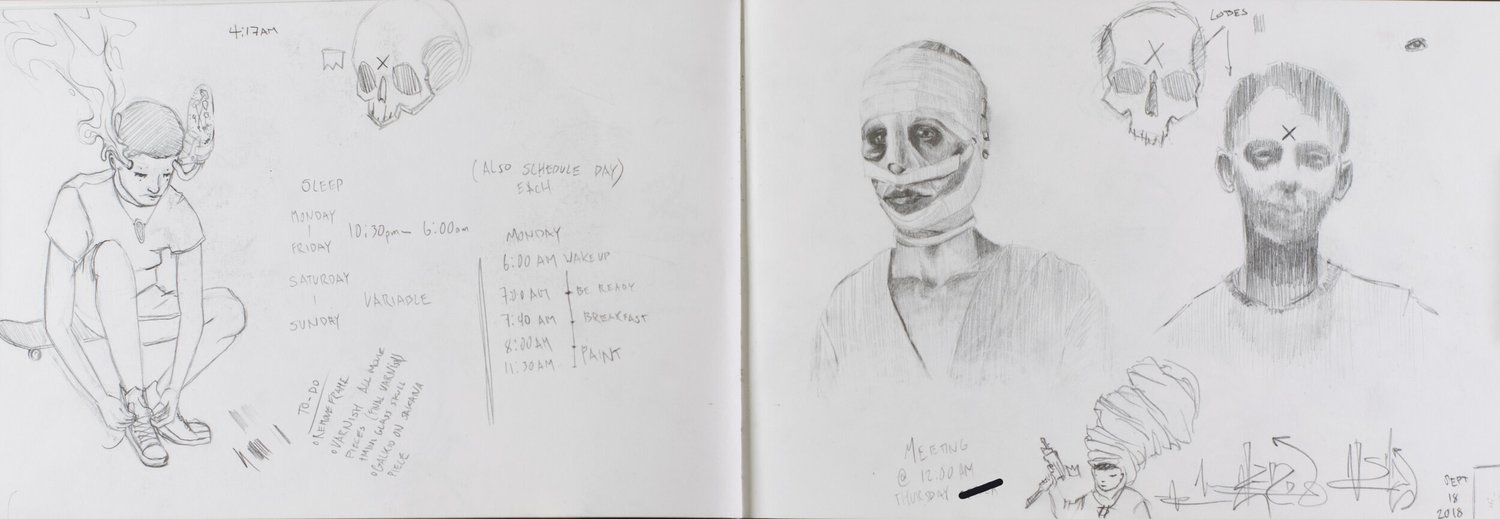 4:17AM
SLEEP
MONDAY
|
FRIDAY
10:30pm — 6:00am
SATURDAY
|
SUNDAY
VARIABLE
TO-DO
REMOVE FRAME
VARNISH ALL MOVIE
PIECES (FINAL VARNISH)
GLASS SKULL
ON
PIECE
(ALSO SCHEDULE DAY)
EACH
MONDAY
6:00 AM WAKEUP
7:00 AM BE READY
7:40 AM BREAKFAST
8:00 AM
PAINT
11:30 AM
LOBES
MEETING
@ 12.00 AM
THURSDAY
SEPT
18
2018